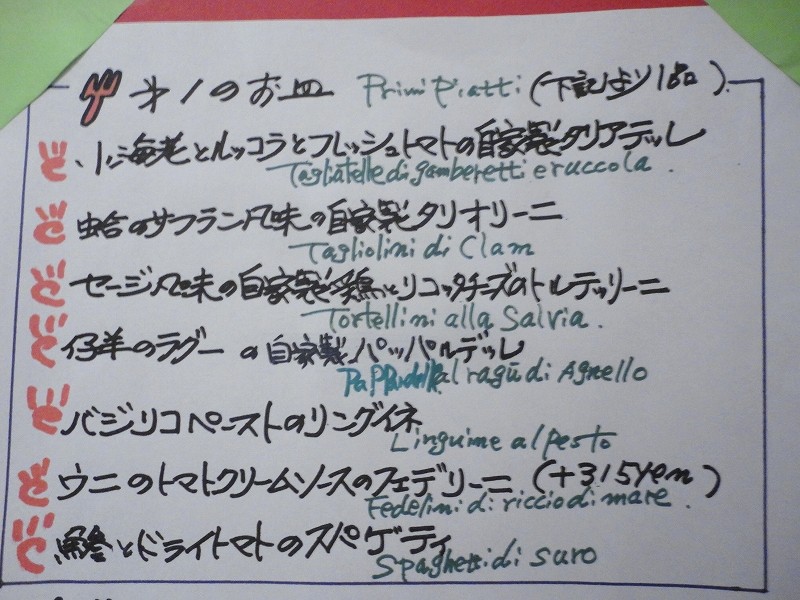 才1のお皿 Primi Piatti (下記より1品)
小海老とルッコラとフレッシュトマトの自家製タリアテッレ
Tagliatelle di gamberetti e ruccola.
蛤のサフラン風味の自家製タリオリーニ
Tagliolini di Clam
セージ風味の自家製鶏とリコッタチーズのトルテッリーニ
Tortellini alla Salvia.
仔羊のラグーの自家製パッパルデッレ
Pappardelle al ragù di Agnello
バジリコペーストのリングイネ
Linguime al pesto
ウニのトマトクリームソースのフェデリーニ (+315yen)
Fedelini di riccio di mare.
とドライトマトのスパゲティ
Spaghetti di suro